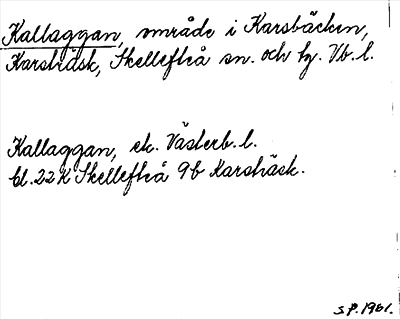 Kallaggan, område i Karsbäcken,
Karsträsk, Skellefteå sn. och tg. Vb. l.
Kallaggan, ek. Västerb. l.
bl. 22 K Skellefteå 9b Karsträsk.
S.P. 1961.